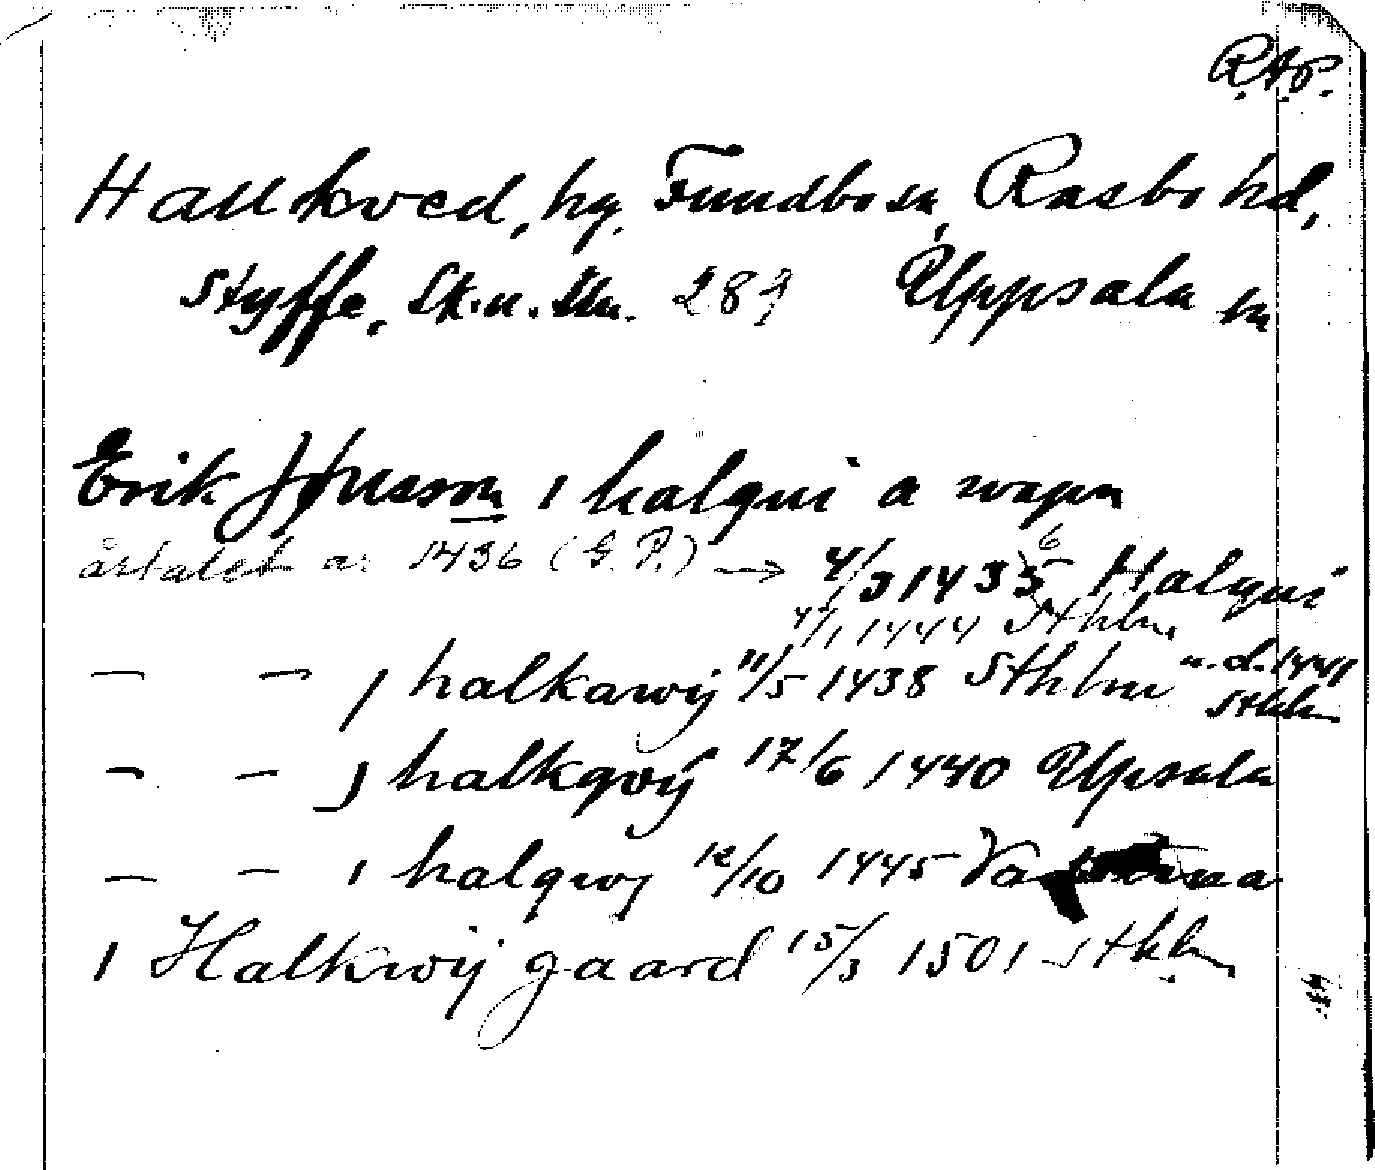 R.A.P.
Hallkved, hg, Fundbo sn, Rasbo hd,
Styffe, Sk. u. Un. 289 Uppsala ln
Erik Jönsson i halqui a wapn
årtalet är 1436 (G. P.) → 4/3 1435 6 Halqui
4/1 1444 Sthlm
— — j halkawij 11/5 1438 Sthlm u. d. 1441
Sthlm
— — j halkqvij 17/6 1440 Upsala
— — i halqwj 12/10 1445 Vadstena
i Halkwij gaard 15/3 1501 Sthlm